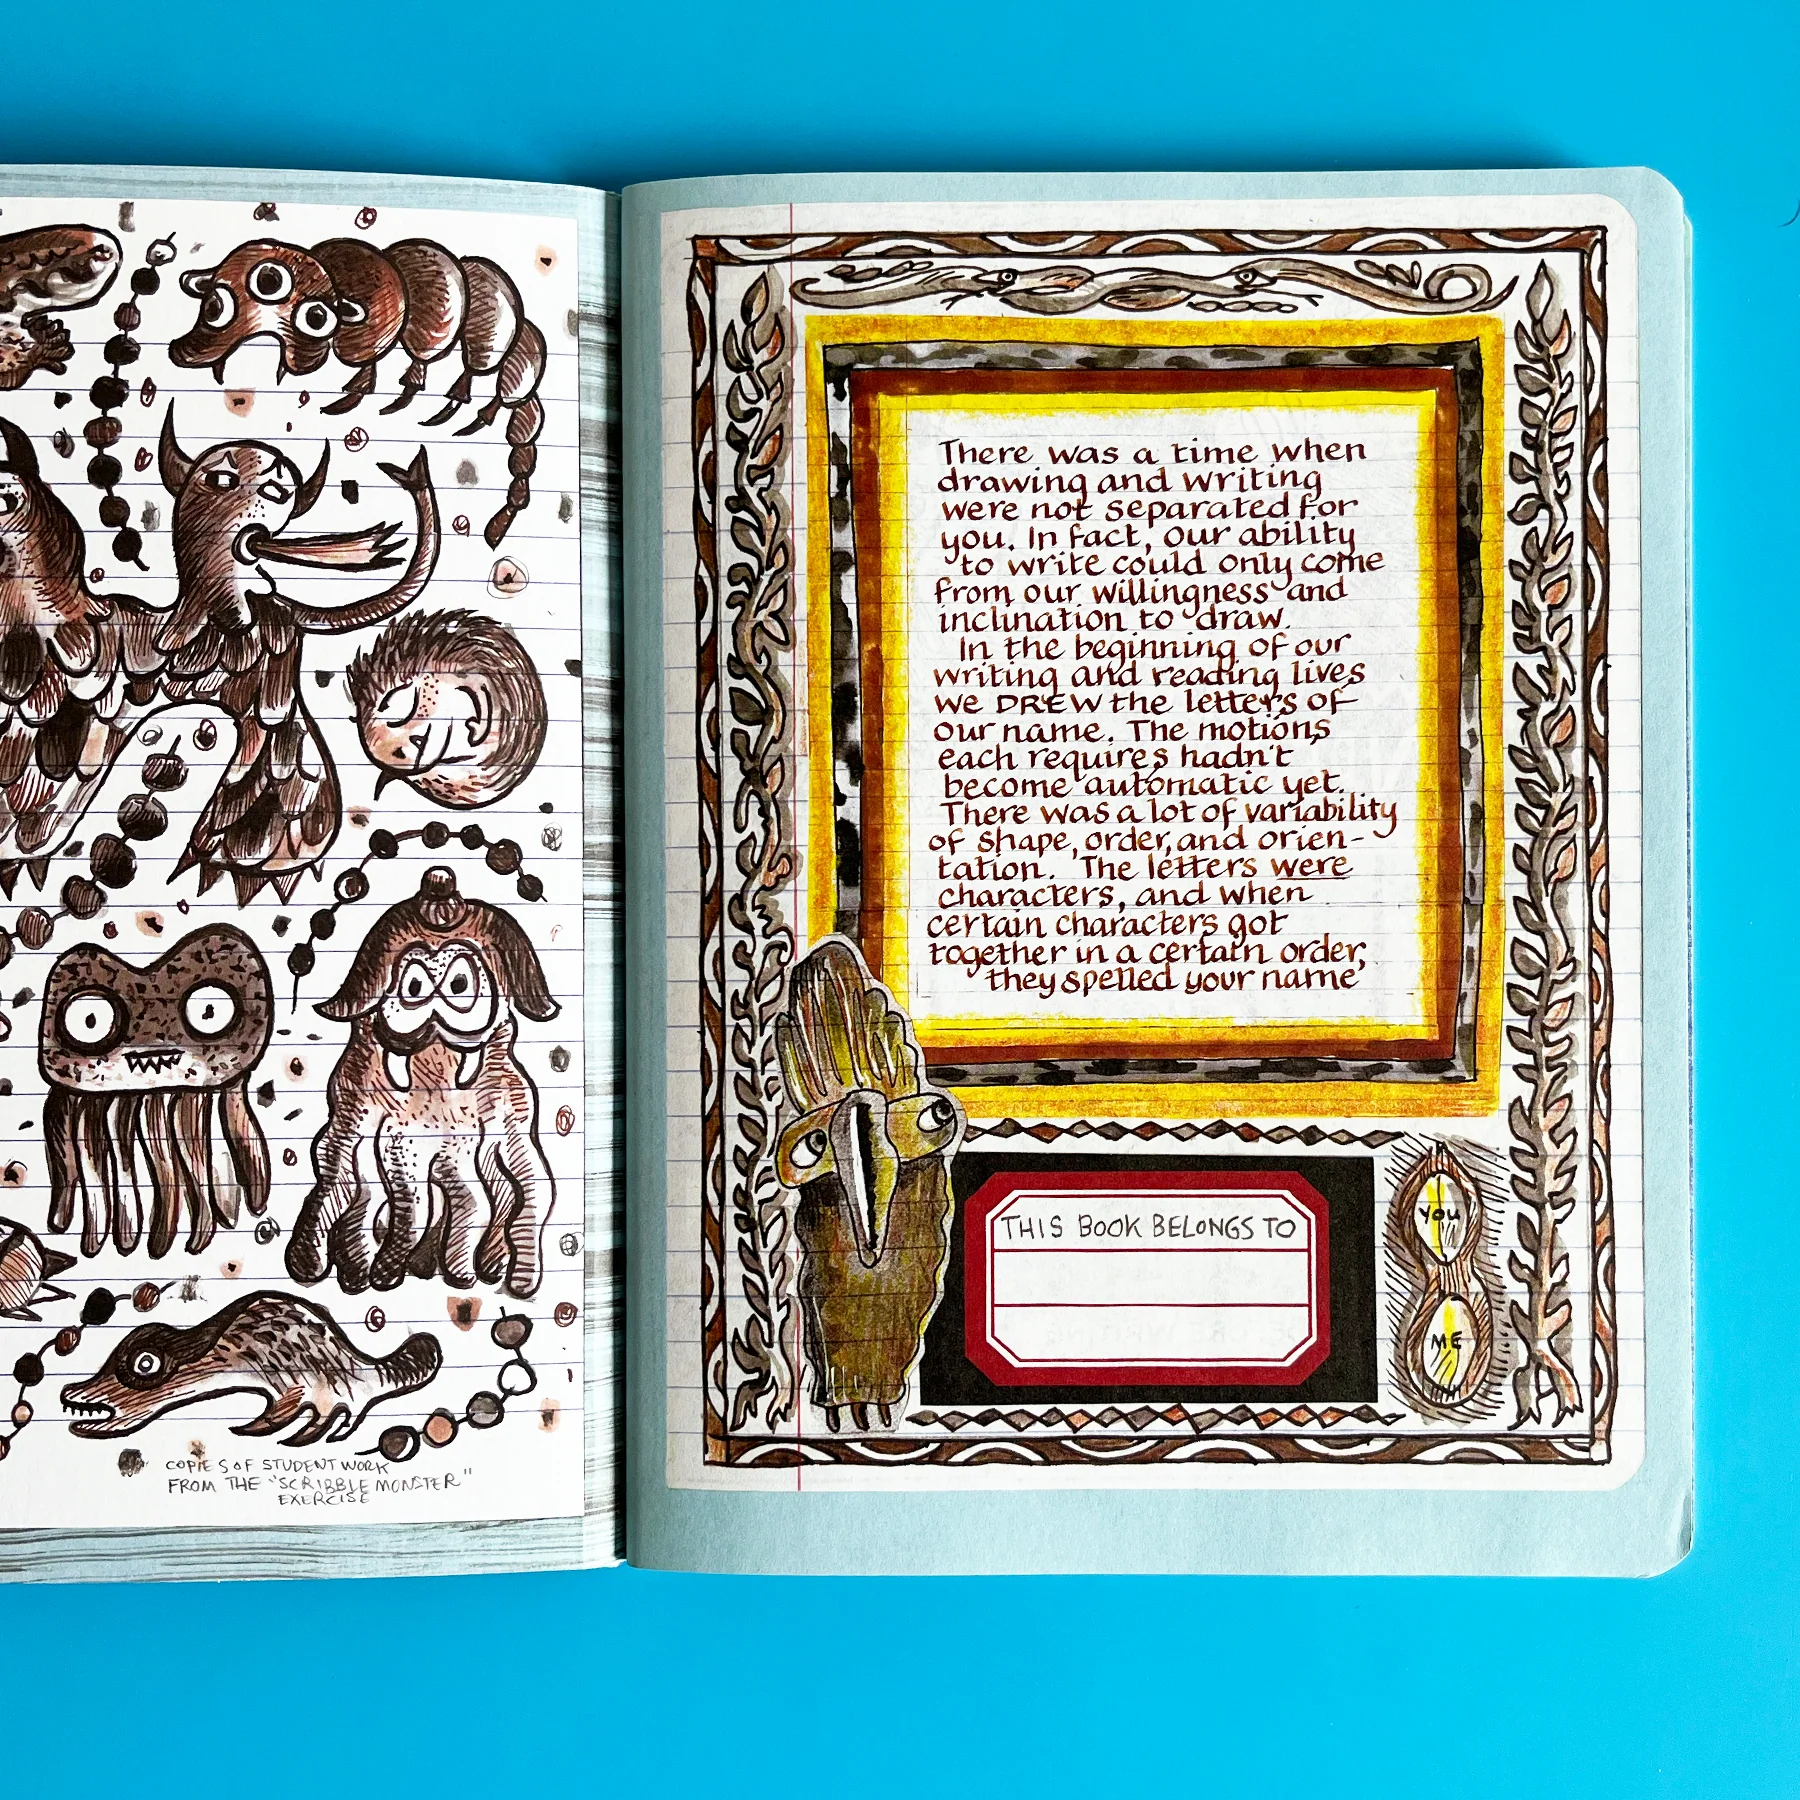 COPIES OF STUDENT WORK
FROM THE "SCRIBBLE MONSTER"
EXERCISE
There was a time when
drawing and writing
were not separated for
you. In fact, our ability
to write could only come
from our willingness and
inclination to draw.
In the beginning of our
writing and reading lives
we DREW the letters of
our name. The motions
each requires hadn't
become automatic yet.
There was a lot of variability
of shape, order, and orien-
tation. The letters were
characters, and when
certain characters got
together in a certain order,
they spelled your name
THIS BOOK BELONGS TO
YOU
ME